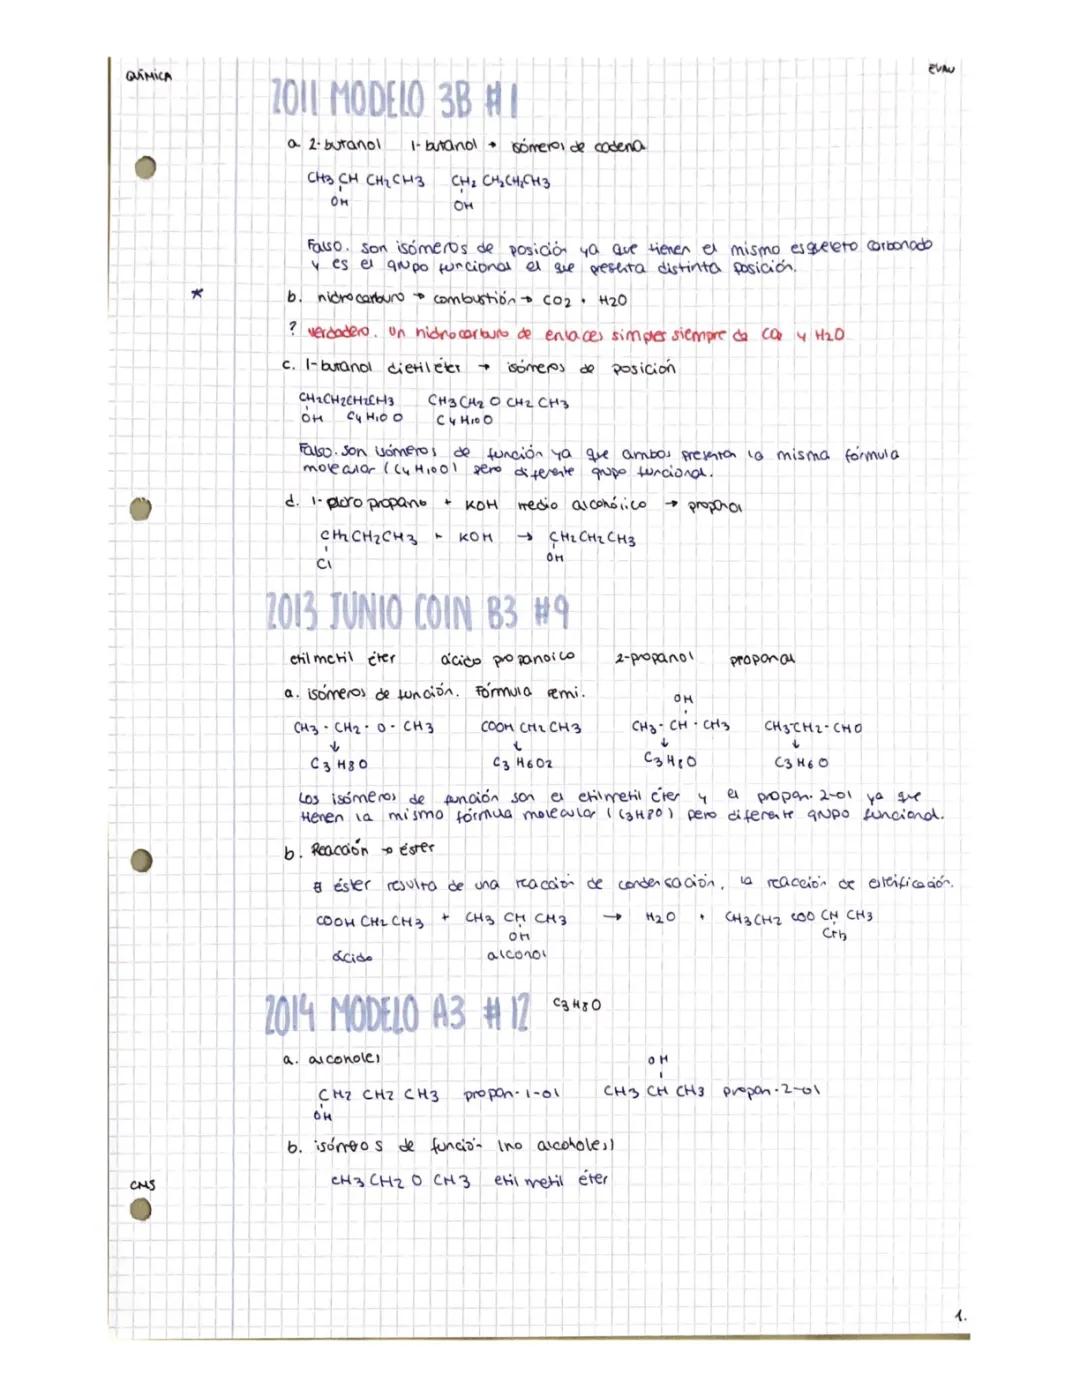 QUÍMICA
EVAU
2011 MODELO 3B #1
a. 2-butanol 1-butanol → isómeros de cadena
CH3 CH CH2 CH3 CH2 CH2 CH2 CH3
OH OH
Falso. Son isómeros de posición ya que tienen el mismo esqueleto carbonado
y es el grupo funcional el que presenta distinta posición.
*
b. hidrocarburo → combustión → CO2 + H2O
? Verdadero. Un hidrocarburo de enlaces simples siempre da CO2 y H2O
c. 1-butanol dietiléter → isómeros de posición
CH2CH2CH2CH3 CH3 CH2 O CH2 CH3
OH C4 H10 O C4 H10 O
Falso. Son isómeros de función ya que ambos presentan la misma fórmula
molecular (C4H10O) pero diferente grupo funcional.
d. 1-cloro propano + KOH medio alcohólico → propanol
CH2 CH2 CH3 + KOH → CH2 CH2 CH3
Cl OH
2013 JUNIO COIN B3 #9
etil metil éter ácido propanoico 2-propanol propanal
a. isómeros de función. Fórmula semi.
OH
CH3 - CH2 - O - CH3 COOH CH2 CH3 CH3 - CH - CH3 CH3-CH2-CHO
↓ ↓ ↓ ↓
C3 H8O C3 H6O2 C3 H8O C3 H6 O
Los isómeros de función son el etilmetil éter y el propan-2-ol ya que
tienen la misma fórmula molecular (C3H8O) pero diferente grupo funcional.
b. Reacción → éster
El éster resulta de una reacción de condensación, la reacción de esterificación.
COOH CH2 CH3 + CH3 CH CH3 → H2O + CH3 CH2 COO CH CH3
OH CH3
ácido alcohol
2014 MODELO A3 #12 C3 H8O
a. alcoholes
OH
CH2 CH2 CH3 propan-1-ol CH3 CH CH3 propan-2-ol
OH
b. isómeros de función (no alcoholes)
CH3 CH2 O CH3 etil metil éter
CMS
1.